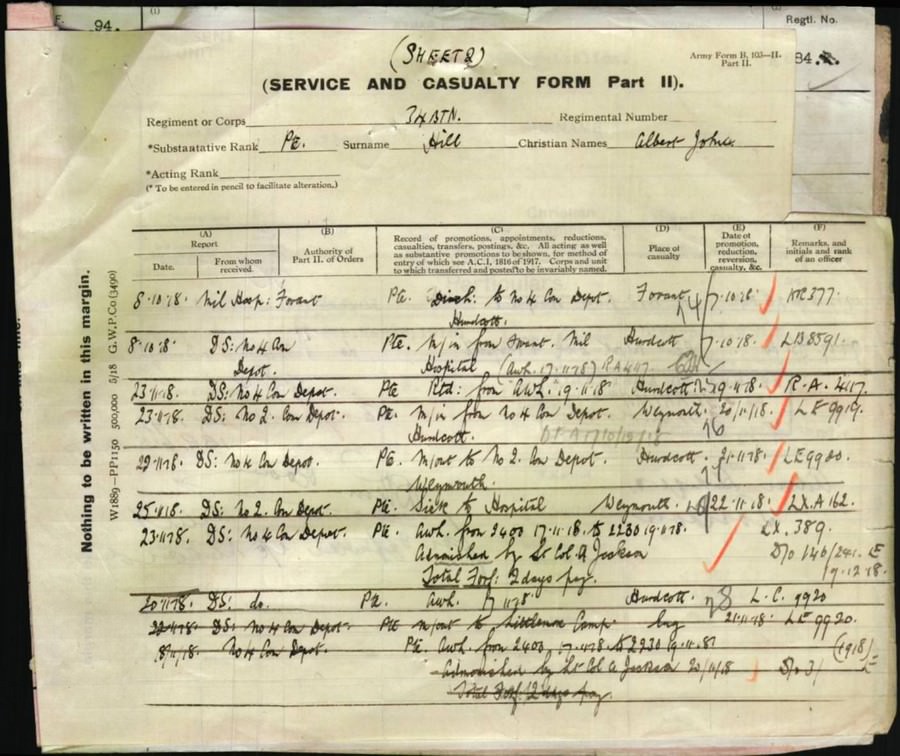 94.
Regtl. No.
(SHEET 2)
Army Form B. 103—II.
Part II.
(SERVICE AND CASUALTY FORM Part II).
Regiment or Corps 34 BTN. Regimental Number
*Substantive Rank Pte. Surname Hill Christian Names Albert John.
*Acting Rank
(* To be entered in pencil to facilitate alteration.)
Nothing to be written in this margin.
W1889—PP1150 500,000 5/18 G.W.P.Co(3490)
(A) Report
Date. From whom received.
(B) Authority of Part II. of Orders
(C) Record of promotions, appointments, reductions, casualties, transfers, postings, &c. All acting as well as substantive promotions to be shown, for method of entry of which see A.C.I, 1816 of 1917. Corps and unit to which transferred and posted to be invariably named.
(D) Place of casualty
(E) Date of promotion, reduction, reversion, casualty, &c.
(F) Remarks, and initials and rank of an officer
8.10.18. Mil Hosp: Fovant Pte. Disch: to No 4 Con Depot. Fovant 7.10.18 KR377.
Hurdcott.
8.10.18. DS: No 4 Con Pte. M/in from Fovant. Mil Hurdcott 7.10.18. LB8591.
Depot. Hospital (Awl. 17.11.18) RA4117
23.11.18. DS: No 4 Con Depot. Pte Rtd: from AWL. 19.11.18 Hurdcott 19.11.18. R.A. 4117.
23.11.18. DS: No 2. Con Depot. Pte. M/in from No 4 Con Depot. Weymouth. 20/11/18. LE 9919.
Hurdcott.
29.11.18. DS: No 4 Con Depot. Pte. M/out to No 2. Con Depot. Hurdcott. 21.11.18. LE9920.
Weymouth.
25.11.18. DS: No 2. Con Depot. Pte. Sick to Hospital Weymouth 22.11.18. LX.A 162.
23.11.18. DS: No 4 Con Depot. Pte Awl. from 2400 17.11.18. to 2230 19.11.18. LX. 389.
Admonished by Lt Col. A Jackson D/o 146/241. E
Total Forf: 2 days pay. 19.12.18.
20.11.18. DS: do. Pte. Awl. 17.11.18 Hurdcott. L.C. 9920
22.11.18. DS: No 4 Con Depot. Pte M/out to Littlemoor Camp. 21.11.18. LE 9920.
No 4 Con Depot. Pte. Awl. from 2400 17.11.18 to 2230 19.11.18 (1918)
Admonished by Lt Col A Jackson 20/11/18
Total Forf: 2 days pay.